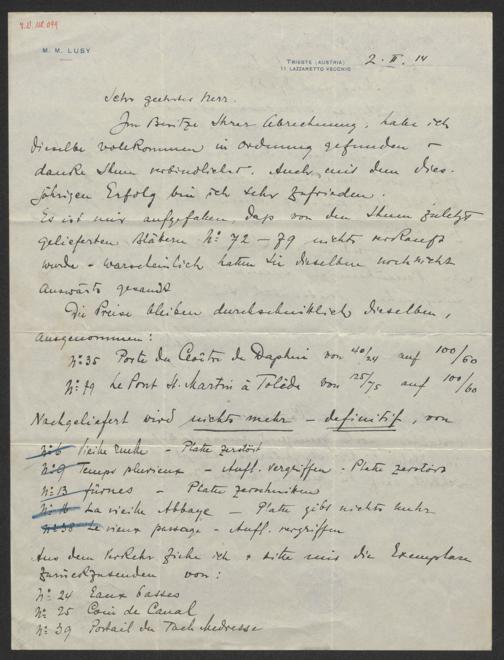 M. M. LUSY
TRIESTE (AUSTRIA)
11 LAZZARETTO VECCHIO
2. II. 14
Sehr geehrter Herr.
Im Besitze Ihrer Abrechnung, habe ich
dieselbe vollkommen in Ordnung gefunden &
danke Ihnen verbindlichst. Auch mit dem dies-
jährigen Erfolg bin ich sehr zufrieden.
Es ist mir aufgefallen, dass von den Ihnen zuletzt
gelieferten Blättern No 72 – 79 nichts verkauft
wurde – warscheinlich hatten Sie dieselben noch nicht
auswärts gesandt
Die Preise bleiben durchschnittlich dieselben,
ausgenommen:
No 35 Porte du de Daphni von 40/24 auf 100/60
No 79 Le Pont St. Martin à Tolède von 125/75 auf 100/60
Nachgeliefert wird nichts mehr – definitif, von
No 6 Vieille – Platte zerstört
No 9 Temps pluvieux – Aufl. vergriffen – Platte zerstört
No 13 Furnes – Platte zerschnitten
La vieille Abbaye – Platte gibt nichts mehr
No 38 Le vieux passage – Aufl. vergriffen
Aus dem Verkehr ziehe ich & bitte mir die Exemplare
zurückzusenden von:
No 24 Eaux basses
No 25 Coin de Canal
No 39 Portail du